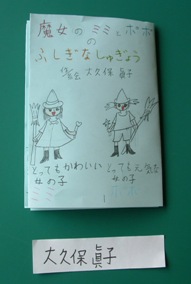 魔女のミミとポポ
の
ふしぎなしゅぎょう
作・絵 大久保 眞子
とってもかわいい
女の子
ミミ
とっても元気な
女の子
ポポ
1
大久保 眞子